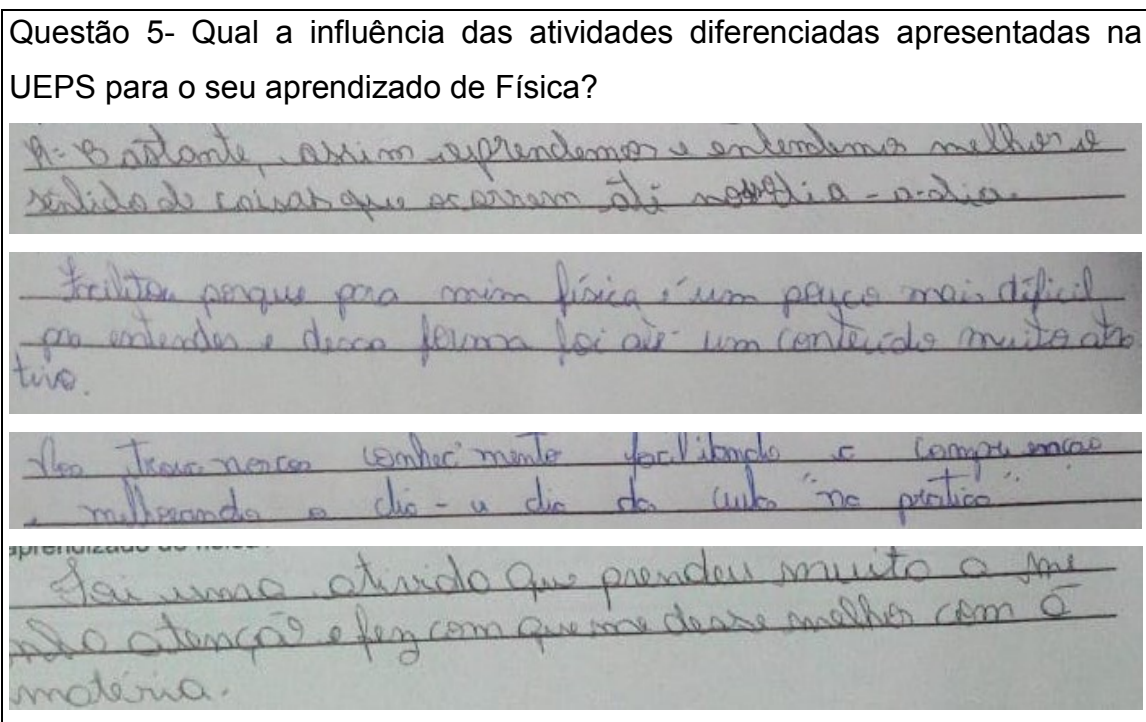 Questão 5- Qual a influência das atividades diferenciadas apresentadas na
UEPS para o seu aprendizado de Física?
R= Bastante, assim aprendemos e entendemos melhor o
sentido de coisas que ocorrem até nosso dia-a-dia.
Facilitou porque pra mim física é um pouco mais dificil
pra entender e dessa forma foi até um conteúdo muito atra
tivo.
conhecimento facilitando a
melhorando o dia-a dia da aula "na pratica".
Foi uma atividade que prendeu muito a mi
nha atenção e fez com que me desse melhor com a
matéria.